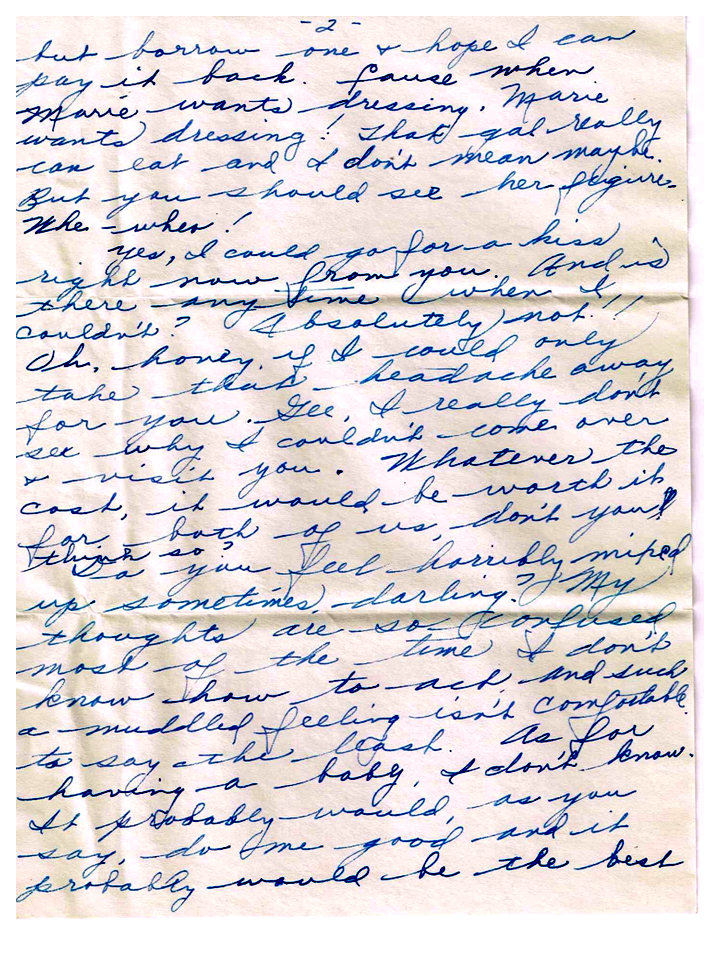 -2-
but borrow one & hope I can
pay it back. Cause when
Marie wants dressing, Marie
wants dressing! That gal really
can eat and I don't mean maybe.
But you should see her figure.
Whe-whew!
Yes, I could go for a kiss
right now from you. And is
there any time when I
couldn't? Absolutely not!!!
Oh, honey, if I could only
take that headache away
for you. Gee, I really don't
see why I couldn't come over
& visit you. Whatever the
cost, it would be worth it
for both of us, don't you
think so?
Do you feel horribly mixed
up sometimes, darling? My
thoughts are so confused
most of the time I don't
know how to act, and such
a muddled feeling isn't comfortable
to say the least. As for
having a baby, I don't know.
It probably would, as you
say, do me good and it
probably would be the best